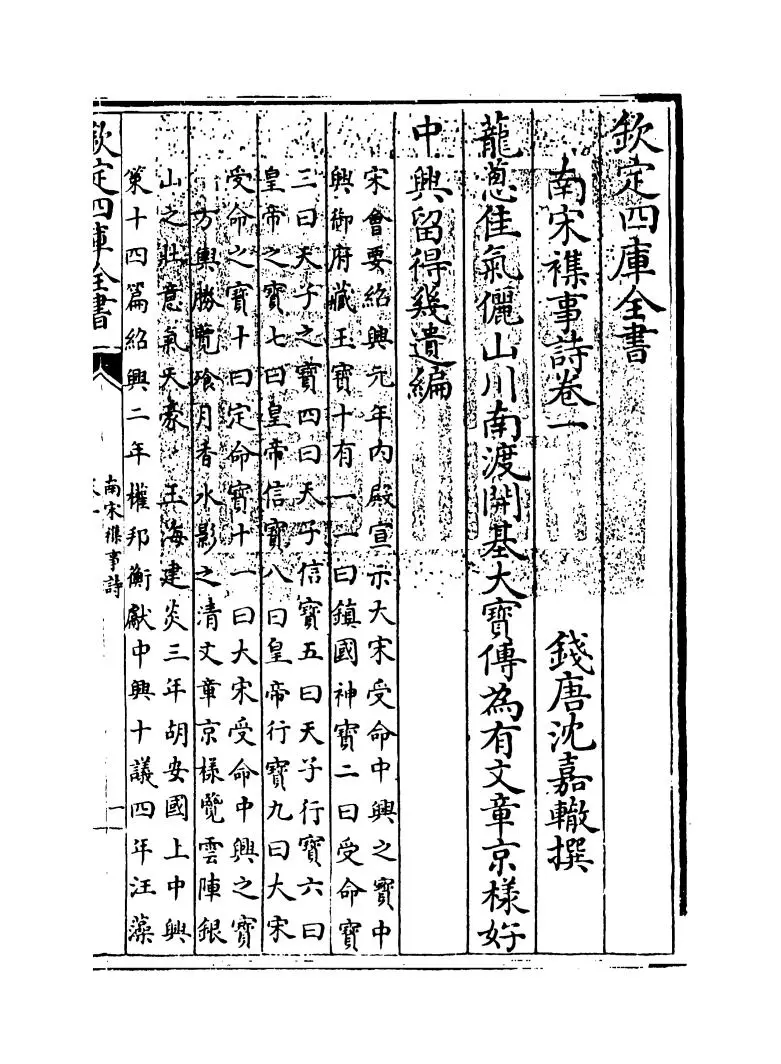 欽定四庫全書
南宋襍事詩卷一
錢唐沈嘉轍撰
龍蔥佳氣儷山川南渡開基大寶傳為有文章京様好
中興留得幾遺編
宋會要紹興元年内殿宣示大宋受命中興之寶中
興御府藏玉寶十有一一曰鎮國神寶二曰受命寶
三曰天子之寶四曰天子信寶五曰天子行寶六曰
皇帝之寶七曰皇帝信寶八曰皇帝行寶九曰大宋
受命之寶十曰定命寶十一曰大宋受命中興之寶
方輿勝覽飱月香水影之清文章京様覽雲陣銀
山之壯意氣天豪 玉海建炎三年胡安國上中興
策十四篇紹興二年權邦衡獻中興十議四年汪藻
欽定四庫全書
南宋襍事詩
卷一
一